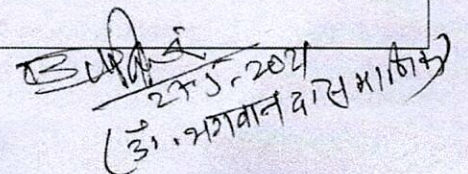 27-5-2021
(डॉ. भगवान दास माणिक)